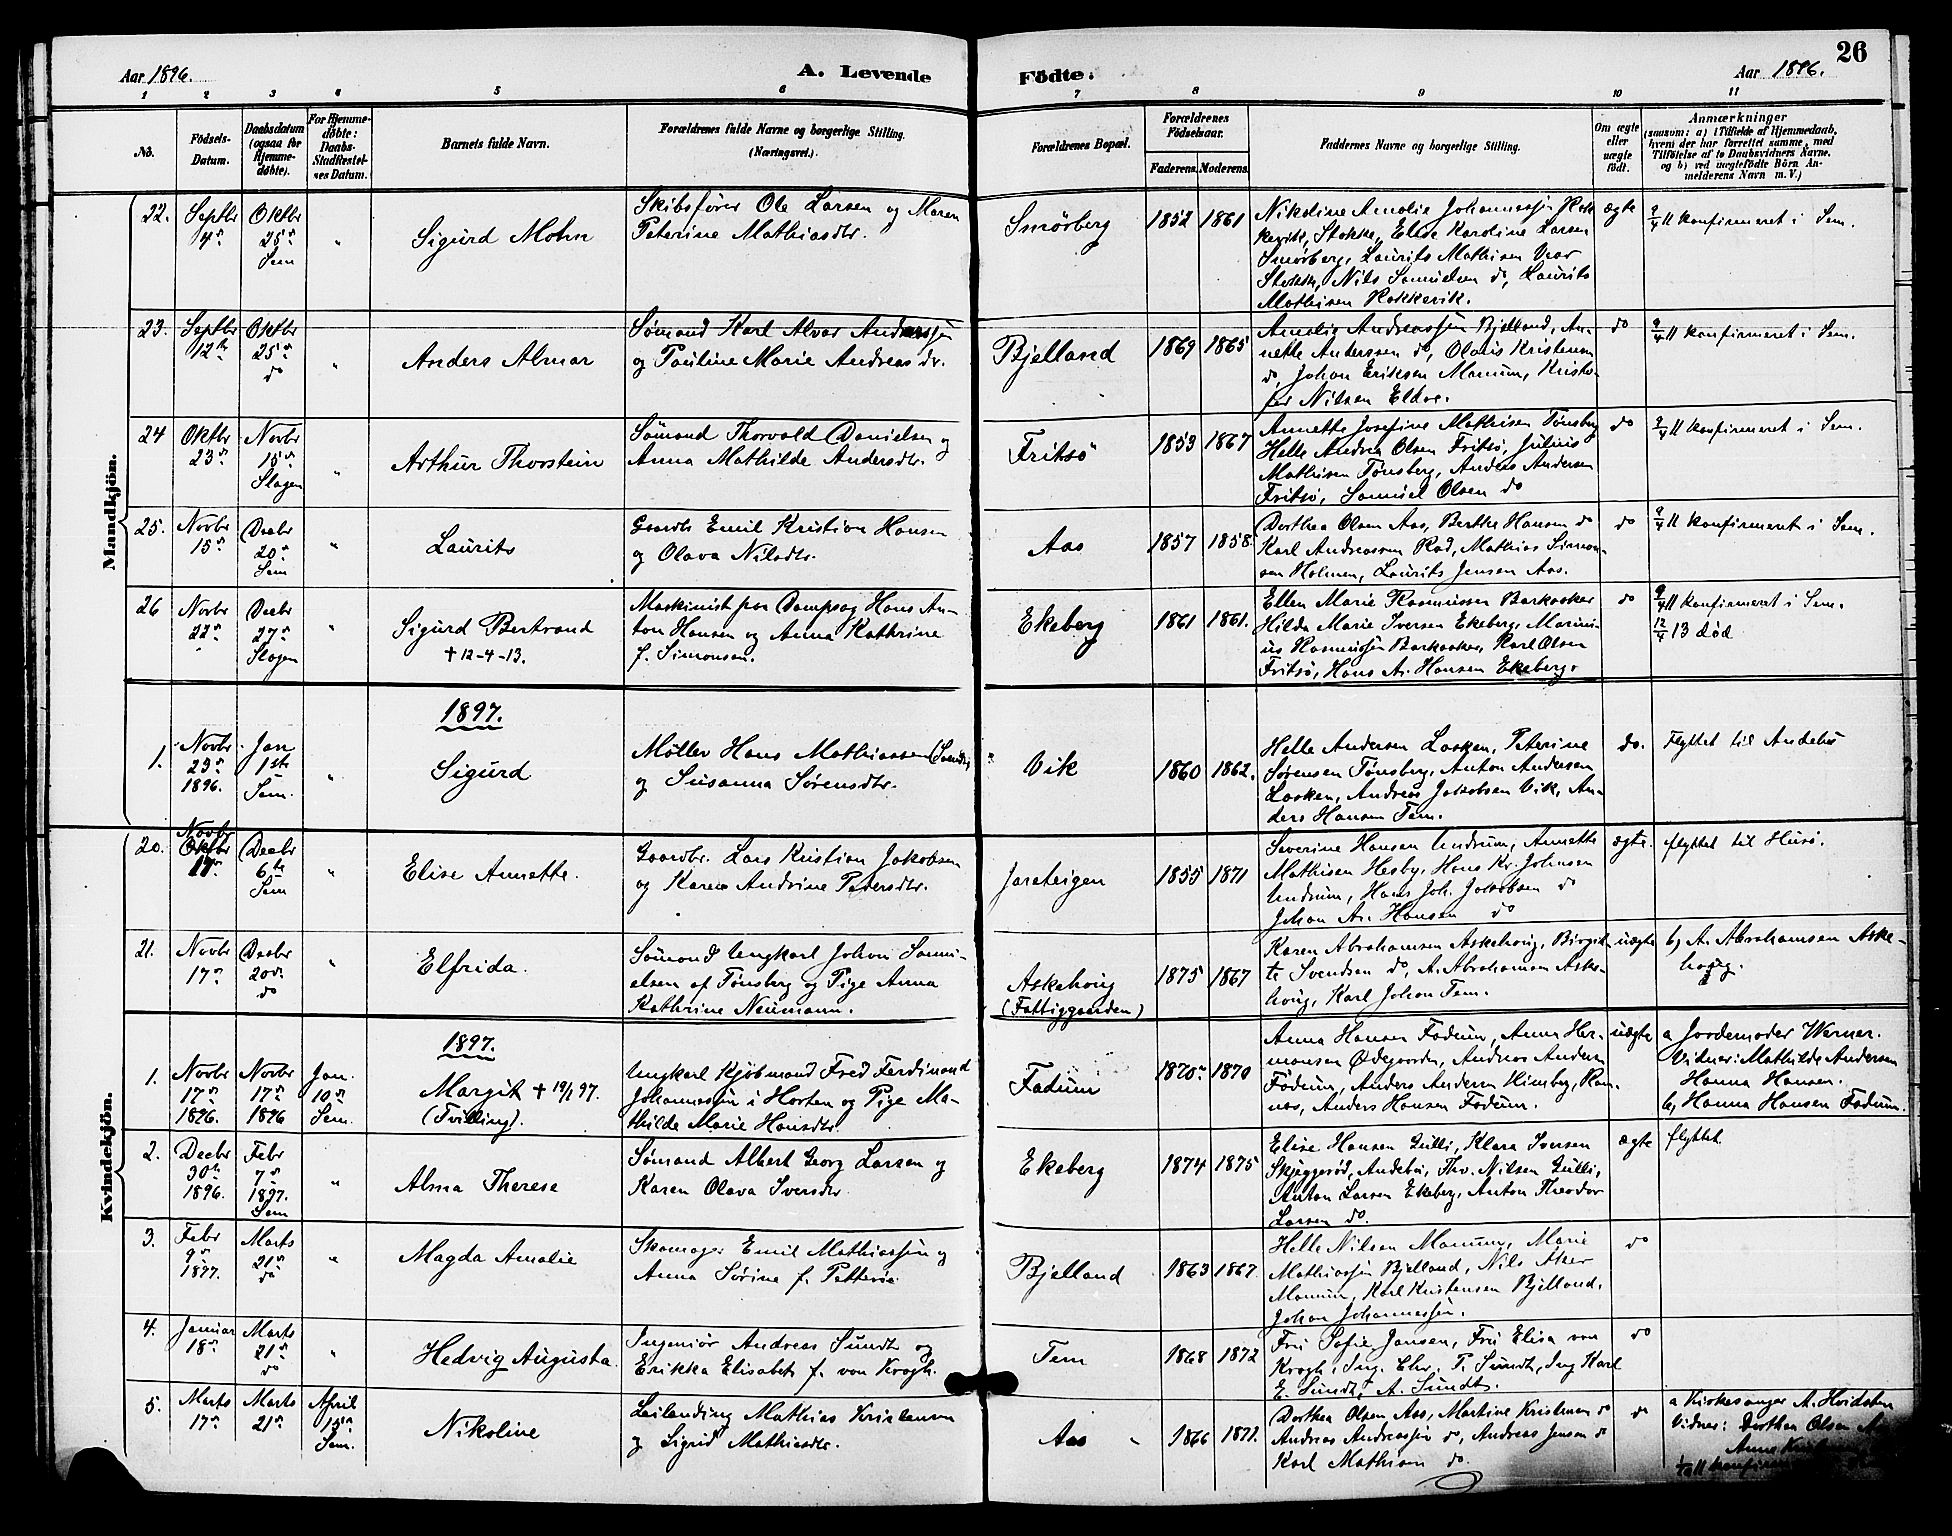 Aar 1896.
A. Levende
Födte.
Aar 1896.
26
1 2 3 4 5 6 7 8 9 10 11
No.
Födsels-Datum.
Daabsdatum (ogsaa for Hjemmedöbte).
For Hjemmedøbte: Daabs-Stadfæstelses Datum.
Barnets fulde Navn.
Forældrenes fulde Navne og borgerlige Stilling.
(Næringsvei.)
Forældrenes Bopæl.
Forældrenes Födselsaar.
Faderens. Moderens.
Faddernes Navne og borgerlige Stilling.
Om ægte eller uægte födt.
Anmærkninger
(saasom: a) i Tilfælde af Hjemmedaab, hvem der har forrettet samme, med Tilföielse af to Daabsvidners Navne, og b) ved uægtefödte Börn Anmelderens Navn m. V.)
Mandkjön.
22. Septbr 4de
Oktbr 25de Sem
"
Sigurd Mohn
Skibsfører Ole Larsen og Maren
Peterine Mathiasdtr.
Smörberg
1852 1861
Nikoline Amalie Johannessen
Stokke, Elise Karoline Larsen
Smörberg, Laurits Mathisen Vear
Stokke, Nils Samuelsen do, Laurits
Mathisen Rakkevik.
ægte
9/4 11 konfirmeret i Sem.
23. Septbr 12te
Oktbr 25de do
"
Anders Almar
Sømand Karl Alvar Anderssen
og Pauline Marie Andreasdtr.
Bjelland
1869 1865
Amalie Andreassen Bjelland, An-
nette Anderssen do, Olaus Kristensen
do, Johan Eriksen Manum, Kristo-
fer Nilsen Eldoe.
do
9/4 11 konfirmeret i Sem.
24 Oktbr 23de
Novbr 15de Slagen
"
Arthur Thorstein
Sømand Thorvald Danielsen og
Anna Mathilde Andersdtr.
Fritsö
1853 1867
Annette Josefine Mathisen Tønsberg
Helle Andrea Olsen Fritsö, Julius
Mathisen Tønsberg, Anders Andersen
Fritsö, Samuel Olsen do
do
9/4 11 konfirmeret i Sem.
25. Novbr 15de
Decbr 20de Sem
"
Laurits
Gaardb. Emil Kristian Hansen
og Olava Nilsdtr.
Aas
1857 1858
Dorthea Olsen Aas, Berthe Hansen do
Karl Andreassen Rad, Mathias Simon-
sen Holmen, Laurits Jensen Aas.
do
9/4 11 konfirmeret i Sem.
26 Novbr 22de
Decbr 27de Slagen
"
Sigurd Bertrand
+ 12-4-13.
Maskinist paa Dampsag Hans An-
ton Hansen og Anna Kathrine
f. Simonsen.
Ekeberg
1861 1861.
Ellen Marie Rasmussen Barkaaker
Hilda Marie Iversen Ekeberg, Marini-
us Rasmussen Barkaaker, Karl Olsen
Fritsö, Hans A. Hansen Ekeberg.
do
9/4 11 konfirmeret i Sem.
12/4 13 död
1897.
1. Novbr 23de 1896.
Jan 1ste Sem.
"
Sigurd
Møller Hans Mathiassen
og Susanna Sørensdtr.
Vik
1860 1862.
Helle Andersen Lasken, Peterine
Sørensen Tønsberg, Anton Andersen
Lasken, Andreas Jakobsen Vik, An-
ders Hansen Tem.
do.
Flyttet til Andebu
Kvindekjön.
20. Novbr 17de
Decbr 6te Sem
"
Elise Annette.
Gaardbr. Lars Kristian Jakobsen
og Karen Andrine Pedersdtr.
Jareteigen
1855 1871
Severine Hansen Undrum, Annette
Mathisen Hesby, Hans Kr. Johnsen
Undrum, Hans Joh. Jakobsen do
Johan A. Hansen do
ægte.
flyttet til Husö.
21. Novbr 17de
Decbr 20de do
"
Elfrida.
Sømand Ungkarl Johan Samu-
elsen af Tønsberg og Pige Anna
Kathrine Neumann.
Askehoug
(Fattiggaarden)
1875 1867
Karen Abrahamsen Askehoug, Birgit-
te Svendsen do, A. Abrahamsen Aske-
houg, Karl Johan Tem.
uægte
b, A. Abrahamsen Aske-
houg.
1897.
1. Novbr 17de 1896.
Novbr 17de 1896
Jan. 10de Sem.
Margit + 19/1 97.
(Tvilling).
Ungkarl Kjöbmand Fred Ferdinand
Johannessen i Horten og Pige Ma-
thilde Marie Hansdtr.
Fadum
1870 1870
Anna Hansen Fadum, Anna Her-
mansen Ødegaarden, Andreas Andersen
Fadum, Anders Andersen Himberg, Ram-
nes, Anders Hansen Fadum.
uægte
a Jordemoder Werner.
Vidner: Mathilde Andersen
Hanna Hansen.
b, Hanna Hansen Fadum.
2. Decbr 30te 1896.
Febr 7de 1897. Sem
"
Alma Therese
Sømand Albert Georg Larsen og
Karen Olava Iversdtr.
Ekeberg
1874 1875
Elise Hansen Gulli, Klara Iversen
Skjeggerød, Andebu, Thv. Nilsen Gulli,
Anton Larsen Ekeberg, Anton Theodor
Larsen do.
ægte
flyttet.
3. Febr 9de 1897.
Marts 21de do
"
Magda Amalie
Skomager Emil Mathiassen og
Anna Sørine f. Petterøe
Bjelland
1863 1867.
Helle Nilsen Manum, Marie
Mathiassen Bjelland, Nils Aker
Manum, Karl Kristensen Bjelland,
Johan Johannessen.
do
4. Januar 18de
Marts 21de do
"
Hedvig Augusta.
Ingeniør Andreas Sundt og
Erikka Elisabet f. von Krogh.
Tem
1868 1872
Fru Sofie Jansen, Fru Elisa von
Krogh, Ing. Chr. P. Sundt, Ing Karl
E. Sundt, A. Sundt.
do
5. Marts 17de
Marts 21de
April 15de Sem.
Nikoline
Leilending Mathias Kristensen
og Sigrid Mathiasdtr.
Aas
1866 1871.
Dorthea Olsen Aas, Martine Kristensen do
Andreas Andreassen do, Andreas Jensen do
Karl Mathisen do.
do
a Kirkesanger A. Hvidsten
Vidner: Dorthea Olsen
Anne
konfirm